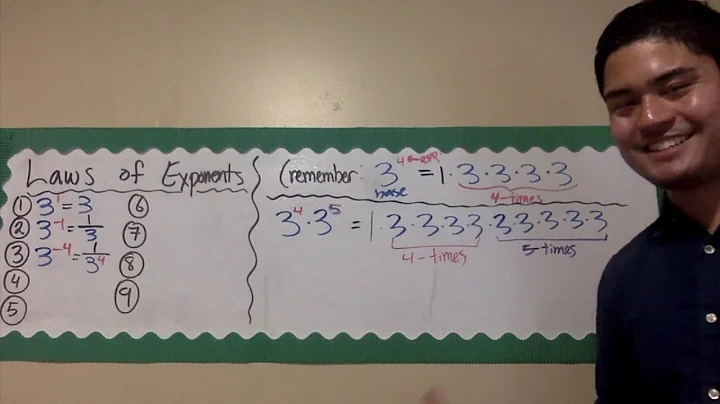 Laws of Exponents
① 3¹ = 3
② 3⁻¹ = 1/3
③ 3⁻⁴ = 1/3⁴
④
⑤
⑥
⑦
⑧
⑨
(remember: 3⁴ = 1·3·3·3·3
base
4-times
3⁴·3⁵ = 1·3·3·3·3·3·3·3·3·3
4-times 5-times